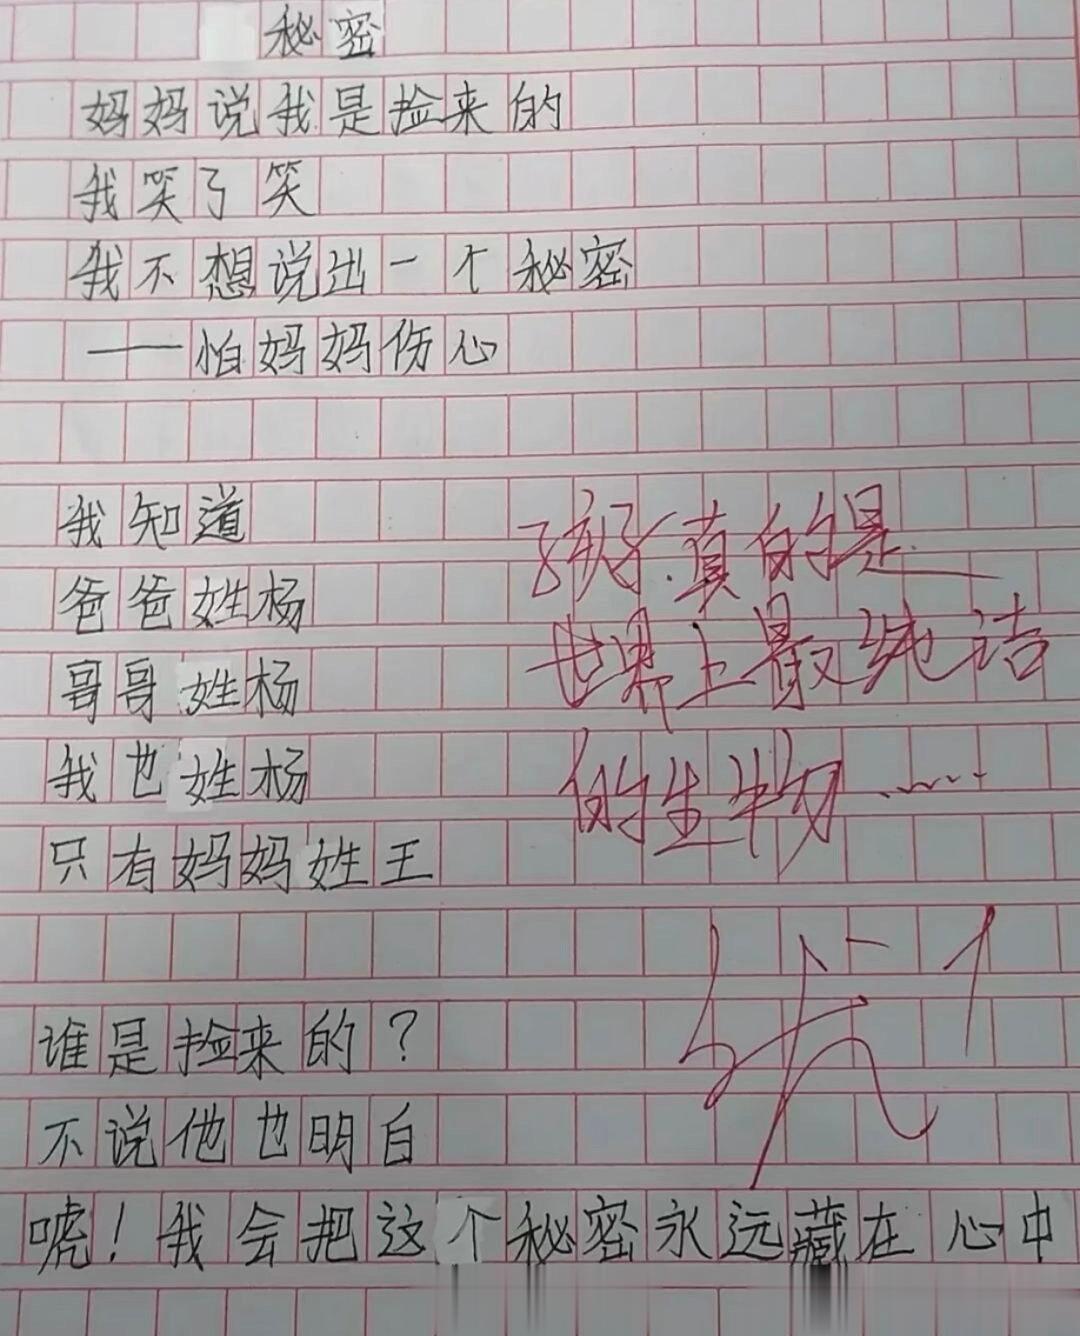 秘密
妈妈说我是捡来的
我笑了笑
我不想说出一个秘密
——怕妈妈伤心
我知道
爸爸姓杨
哥哥姓杨
我也姓杨
只有妈妈姓王
谁是捡来的？
不说他也明白
唬！我会把这个秘密永远藏在心中
孩子真的是
世界上最纯洁
的生物……
优